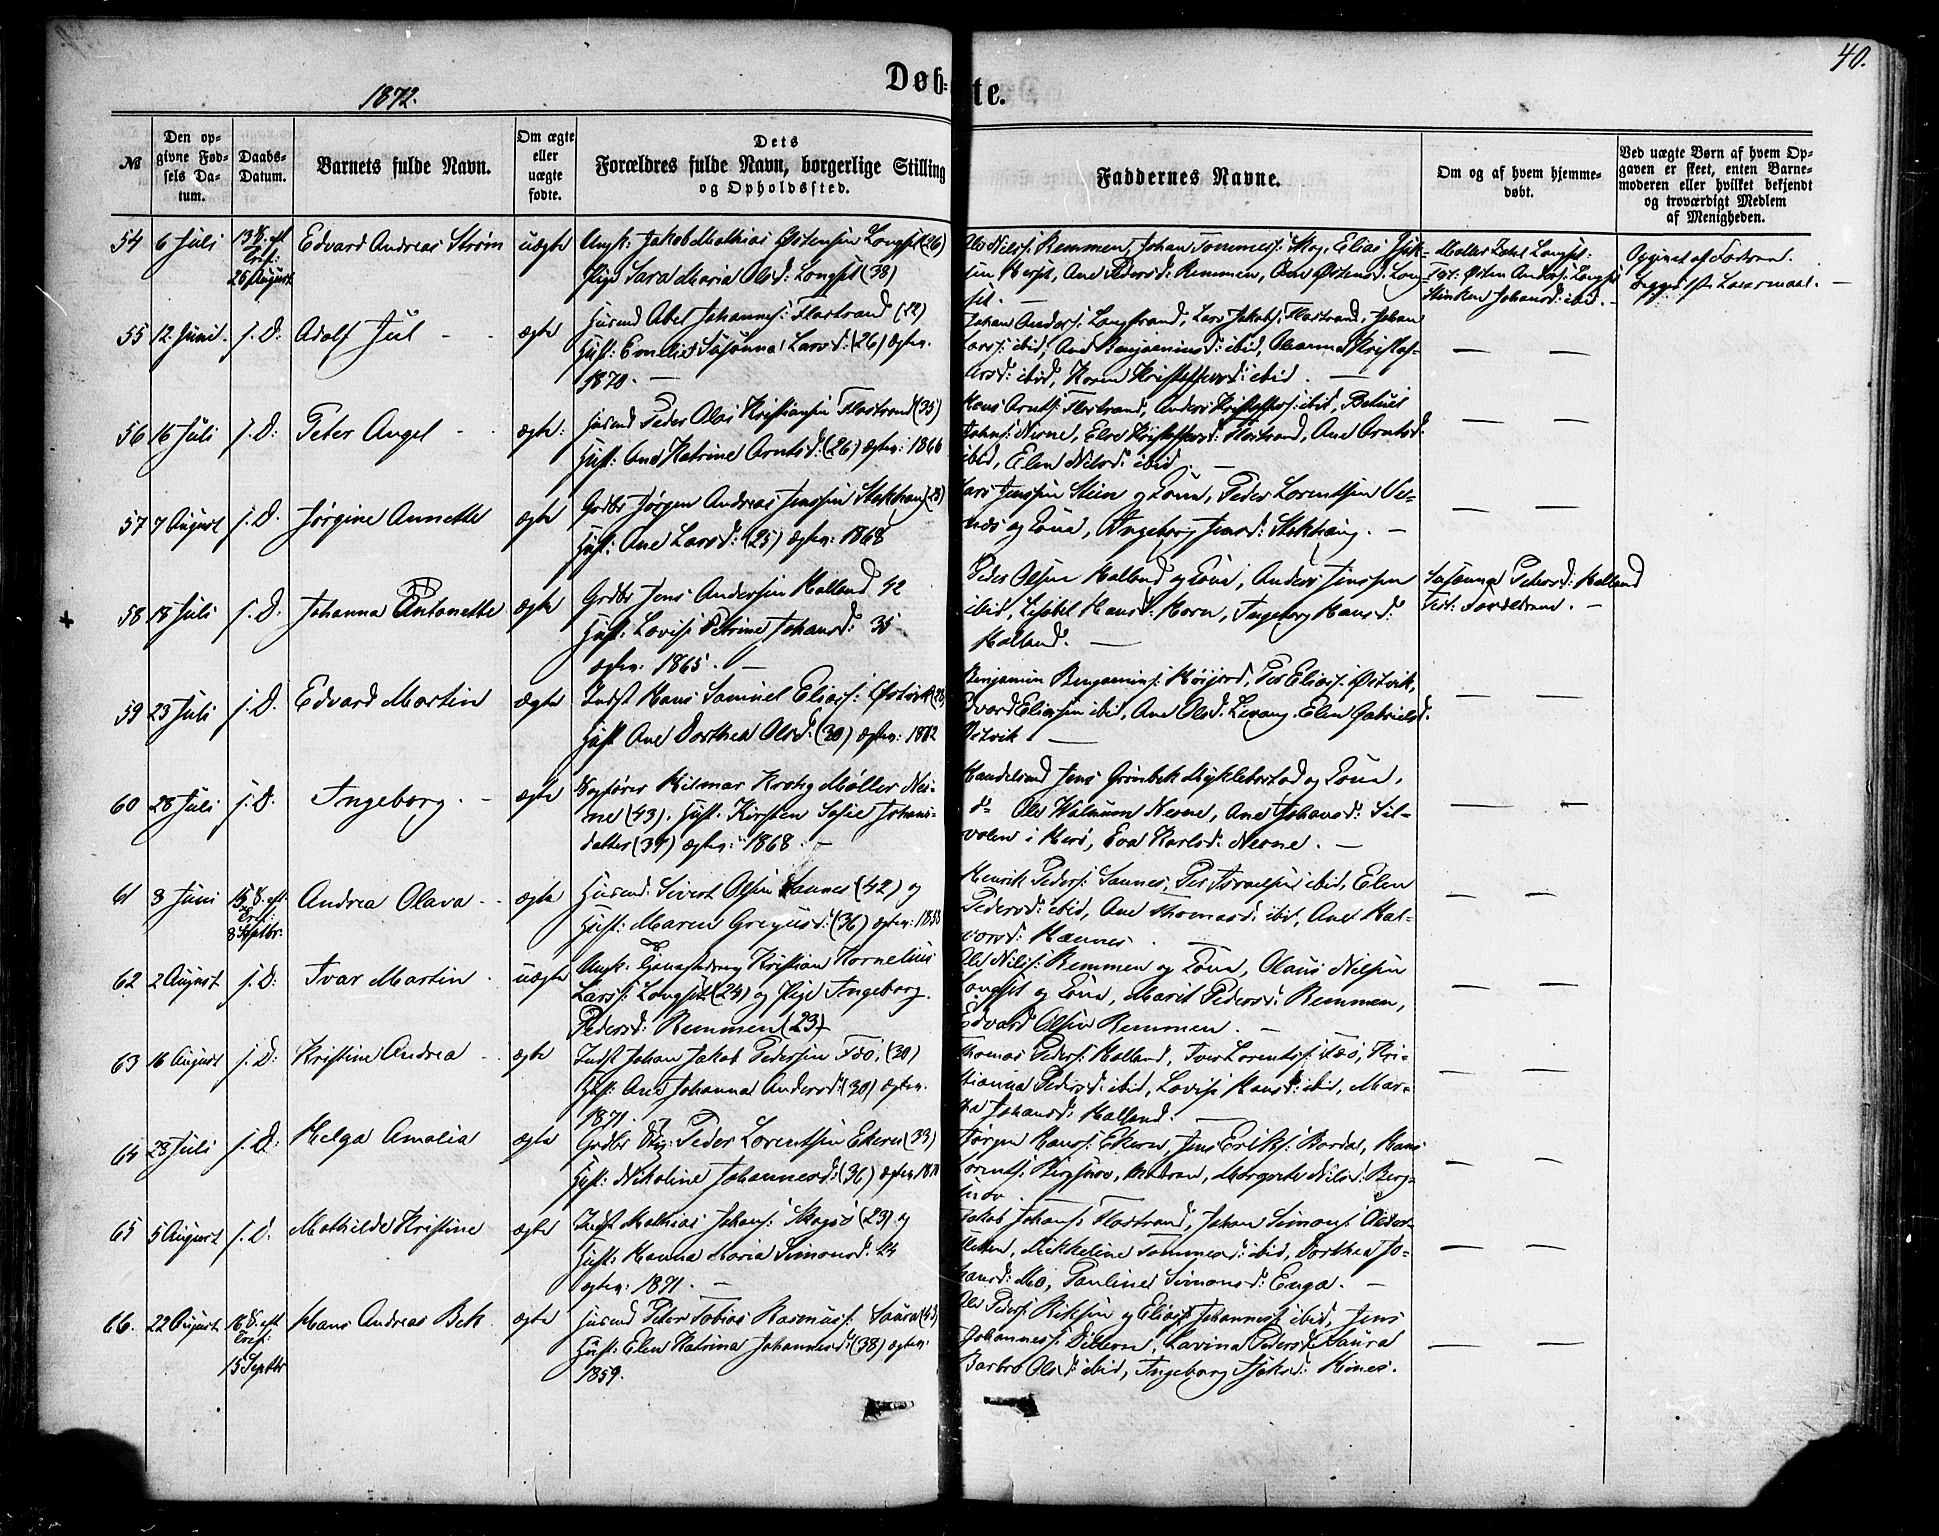 40.
1872.
Døb-te.
№
Den opgivne Fødsels Datum.
Daabs-Datum.
Barnets fulde Navn.
Om ægte eller uægte fødte.
Dets Forældres fulde Navn, borgerlige Stilling og Opholdssted.
Faddernes Navne.
Om og af hvem hjemmedøbt.
Ved uægte Børn af hvem Opgaven er skeet, enten Barnemoderen eller hvilket bekjendt og troværdigt Medlem af Menigheden.
54 6 Juli 13 S. eft Tref: 25 August Edvard Andreas Strøm uægte Ungk: Jakob Mathias Østensen Longset (26)
Pige Sara Maria Olsd: Longset (38)
Ole Nils: Remmen, Johan Tommes: Skog, Elias
Ane Pedersd: Remmen, Ane Østensd: Long-
set. —
Longset:
Østen Anders: Longset
Johansd: ibid. —
Opgivet af Fadrene.
55 12 Juni. s. D: Adolf Jul - - ægte Husmd Abel Johannes: Flostrand (22)
Hust: Emelie Susanna Larsd: (26) ægtev.
1870. —
Johan Anders: Langstrand, Lars Jakobs: Flostrand, Johan
Lars: ibid, Ane Benjaminsd: ibid, Oleanna Kristof-
ersd: ibid, Karen Kristoffersd: ibid. —
— —
56 16 Juli s. D: Peter Angel - - ægte: Husmd Peder Olai Kristiansen Flostrand (35)
Hust: Ane Katrine Arntsd: (26) ægtev: 1866
Hans Arnts: Flostrand, Anders Kristoffers: ibid, Betuel
Johns: Nesne, Else Kristoffersd: Flostrand, Ane Arntsd:
ibid, Elen Nilsd: ibid. —
— —
57 7 August s. D. Jørgine Annette ægte Grdbr Jørgen Andreas Jenssen Stokhaug (28)
Hust: Ane Larsd: (25) ægtev: 1868
Lars Jenssen Stien og Kone, Peder Lorentsen
og Kone, Ingeborg Jensd: Stokhaug. —
— —
58 18 Juli s. D: Johanna Antonette ægte Grdbr Jens Andersen Halland 42
Hust: Lovise Petrine Johansd: 35
ægtev: 1865. —
Peder Olsen Halland og Kone, Anders Jenssen
ibid, Hansd: Horn, Ingeborg Hansd:
Halland. —
Susanna Pedersd: Halland
59 23 Juli s. D. Edvard Martin ægte Indst Hans Samuel Elias: Østvik (28)
Hust Ane Dorthea Olsd: (30) ægtev: 1872
Benjamin Benjamins: Per Elias: Østvik,
Edvard Eliassen ibid, Ane Olsd: Levang. Elen Gabrielsd:
Østvik —
— —
60 28 Juli s. D. Ingeborg. - ægte Hilmar Krohg Møller Nes-
ne (43). Hust. Kirsten Sofie Johans-
datter (37) ægtev: 1868. —
Handelsmd Jens Grønbek Myklebostad og Kone,
do Ole Walnum Nesne, Ane Johansd: Sil-
valen i Herø, Eva Karlsd: Nesne. —
— —
61 8 Juni 15 S. eft Tref: 8 Septbr: Andrea Olava - - ægte Husmd: Sivert Olsen Saunes (42) og
Hust: Maren Gregusd: (36) ægtev: 1853
Henrik Peders: Saunes, Per Israelsen ibid, Elen
Pedersd: ibid, Ane Thomasd: ibid, Ane Hal-
vorsd: Hannes. —
— —
62 2 August s. D: Ivar Martin - uægte Ungk: Kristian Kornelius
Lars: Longset (24) og Pige Ingeborg
Pedersd: Remmen (23)
Ole Nils: Remmen og Kone, Olaus Nilsen
Longset og Kone, Marit Pedersd: Remmen,
Edvard Olsen Remmen. —
— —
63 16 August s. D: Kristine Andrea - ægte Indst Johan Jakob Pedersen (30)
Hust: Ane Johanna Andersd: (30) ægtev.
1871. —
Thomas Peders: Halland, Iver Lorents: Kri-
stianna Pedersd: ibid, Lovise Hansd: ibid, Mar-
Johansd: Halland. —
— —
64 28 Juli s. D: Helga Amalia ægte Grdbr Peder Lorentsen Ekeren (33)
Hust: Nikoline Johannesd: (36) ægtev 1870
Jørgen Hans: Ekern, Jens Eriks: Hans
Lorents: Margrete Nilsd: Berg-
— —
65 5 August s. D. Mathilde Kristine ægte Indst Mathias Johans: Skogsø (23) og
Hust: Hanna Maria Simonsd: 24
ægtev: 1871. —
Jakob Johans: Flostrand, Johan Simons:
Mikkeline Tommesd: ibid, Dorthea Jo-
hansd: Mo, Pauline Simonsd: Enga. —
— —
66. 22 August 16 S. eft Tref: 15 Septbr Hans Andreas Bek. ægte Husmd Peter Tobias Rasmus: Saura (43)
Hust: Elen Katrina Johannesd: (38) ægtev:
1859.
Ole Peders: og Elias Johannes: ibid, Jens
Johannes: Lavina Pedersd: Saura
Barbro Olsd: ibid, Ingeborg
— —